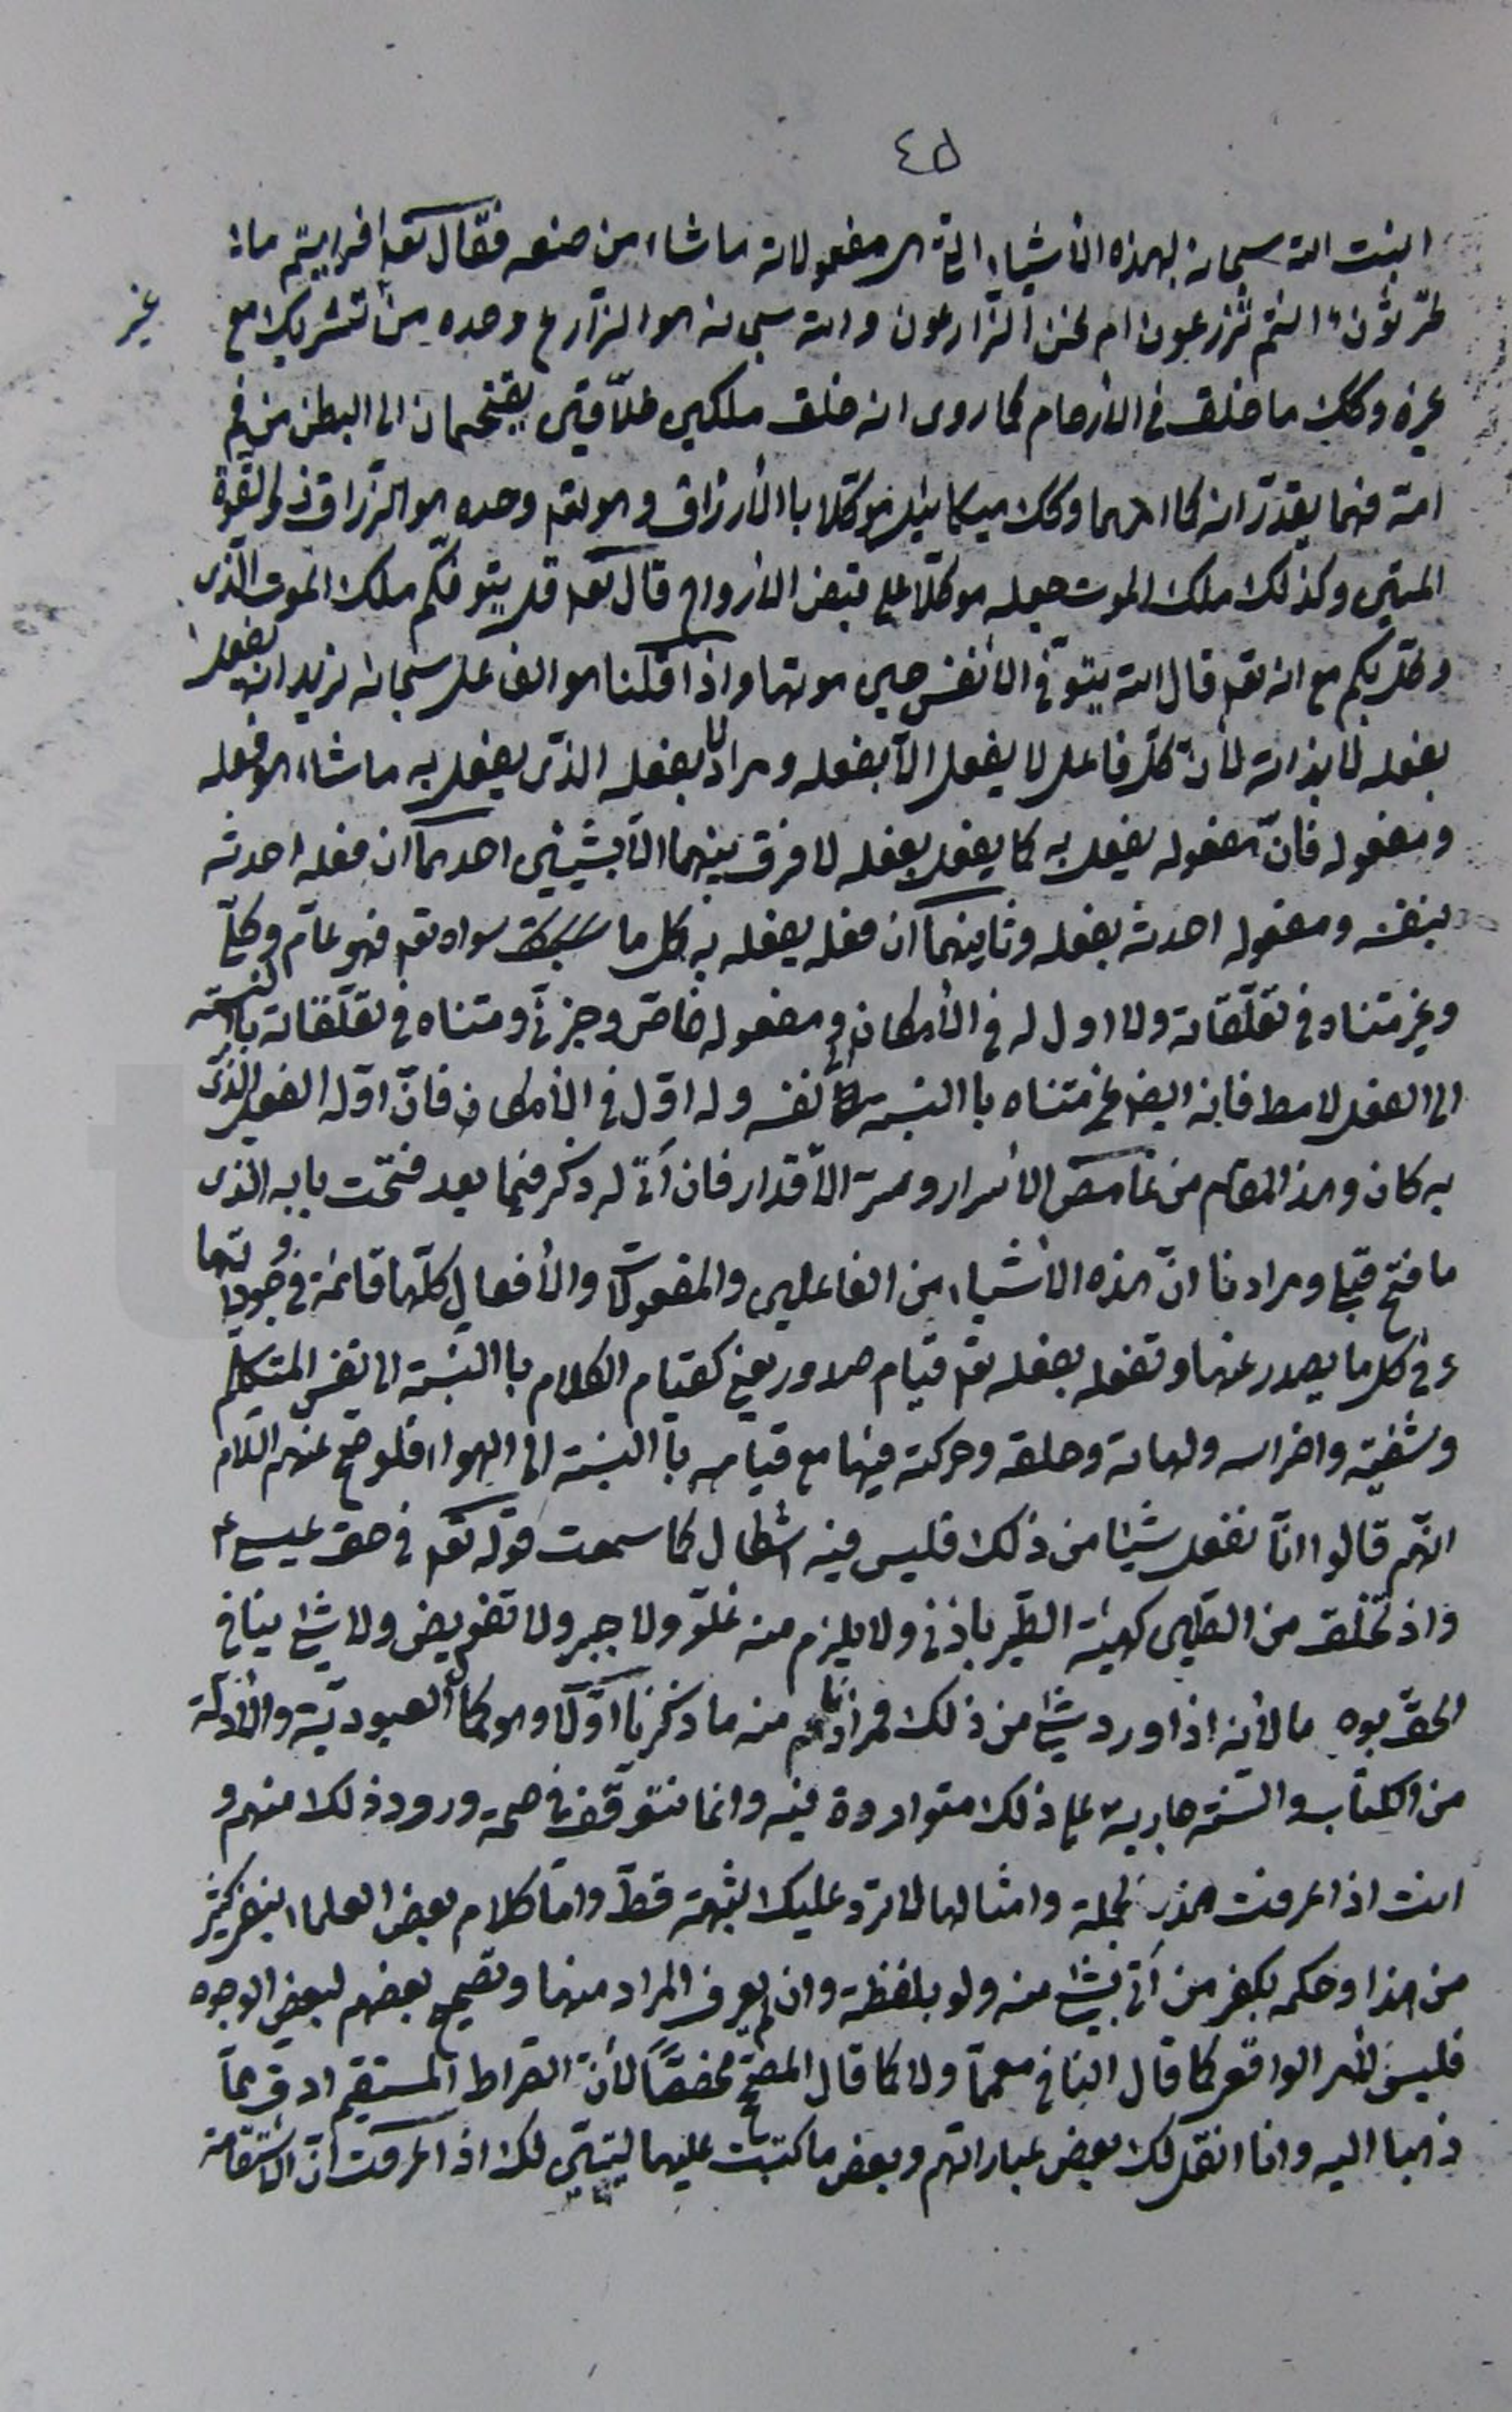 ٤٥
انبت الله سبحانه بهذه الأشياء التي هى مفعولاته ما شاء من صنعه فقال تعه افرايتم ما
تحرثون ءانتم تزرعون ام نحن الزارعون والله سبحانه هو الزارع وحده من تشريك مع
غير
غيره وكك ما خلق فى الأرحام كما روى انه خلق ملكين خلّاقين يقتحمان الى البطن من فم
امه فهما يقدّرانه كما امرهما وكك ميكائيل موكلا باالأرزاق وهو تعه وحده هو الرّزاق ذو القوة
المتين وكذلك ملك الموت جعله موكلا على قبض الأرواح قال تعه قل يتوفكم ملك الموت الذى
وكل بكم مع انه تعه قال الله يتوفى الأنفس حين موتها واذا قلنا هو الفاعل سبحانه نريد انه يفعل
بفعله لا بذاته لأنّ كل فاعل لا يفعل الّا بفعله ومرادنا بفعله الذى يفعل به ما شاء هو فعله
ومفعوله فانّ مفعوله يفعل به كما يفعل بفعله لا فرق بينهما الّا بشيئين احدهما ان فعله احدثه
بنفسه ومفعوله احدثه بفعله وثانيهما ان فعله يفعل به كل ما سواه تعه فهو عامّ وكلّى
وغير متناه فى تعلّقاته ولا اول له فى الأمكان ومفعوله خاصّ وجزئى ومتناه فى تعلّقاته باالنسبة
الى الفعل لا مط فانه ايض غير متناه باالنسبة الى نفسه وله اوّل فى الأمكان فانّ اوّله الفعل الذى
به كان وهذا المقام من غامض الأسرار وسر الأقدار فان اتى له ذكر فيما بعد فتحت بابه الذى
ما فتح قبلى ومرادنا انّ هذه الأشياء من الفاعلين والمفعولات والأفعال كلّها قائمة فى وجوداتها
وفى كل ما يصدر عنها وتفعله بفعله تعه قيام صدور يعنى كقيام الكلام باالنسبة الى نفس المتكلم
وشفتيه واضراسه ولهاته وحلقه وحركته فيها مع قيامه باالنسبة الى الهواء فلو صح عنهم السلام
انهم قالوا انّا نفعل شيئا من ذلك فليس فيه اشكال كما سمعت قوله تعه فى حق عيسى ع
واذ تخلق من الطين كهيئة الطير باذنى ولا يلزم منه غلوّ ولا جبر ولا تفويض ولا شئ ينافى
الحق بوجه ما لأنه اذا ورد شئ من ذلك فمرادهم منه ما ذكرنا اوّلا وهو كما العبوديّة والأدلّة
من الكتاب والسنّة جارية على ذلك متواردة فيه وانما نتوقف فى صحة ورود ذلك منهم و
انت اذا عرفت هذه الجملة وامثالها لا ترد عليك شبهة قطّ وامّا كلام بعض العلماء بنفى كثير
من هذا وحكمه بكفر من اتى بشئ منه ولو بلفظة وان لم يعرف المراد منها وتصحيح بعضهم لبعض الوجوه
فليس الأمر الواقعى كما قال النافى معمّما ولا كما قال المصحّح مخصّصا لأنّ الصراط المستقيم ادق ممّا
ذهبا اليه وانا انقل لك بعض عباراتهم وبعض ما كتبت عليها ليتبيّن لك اذا عرفت انّ الأستقامة